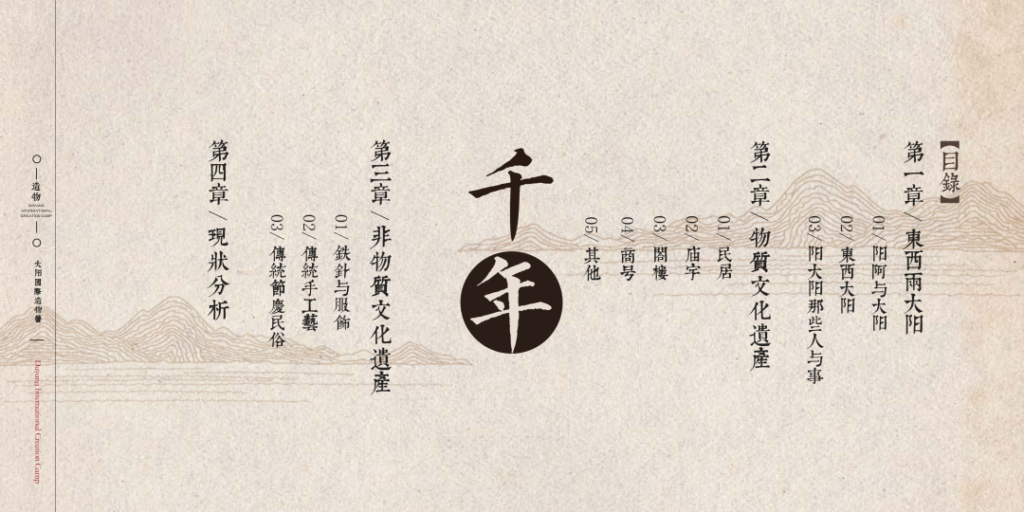 【目錄】
第一章/東西兩大阳
01/阳阿与大阳
02/東西大阳
03/阳大阳那些人与事
第二章/物質文化遺產
01/民居
02/庙宇
03/閣樓
04/商号
05/其他
千年
第三章/非物質文化遺產
01/鉄針与服飾
02/傳統手工藝
03/傳統節慶民俗
第四章/現狀分析
造物
大阳國際造物營
Dayang International Creation Camp